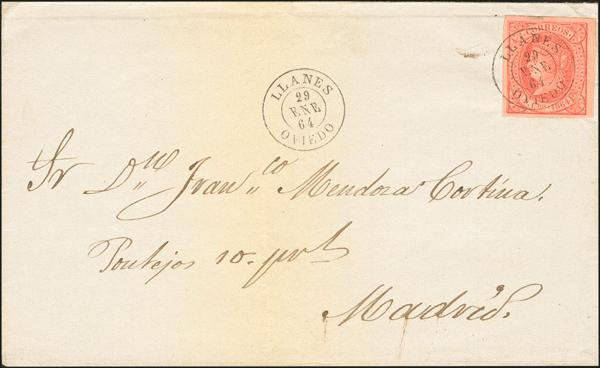 CORREOS
LLANES
29
ENE
64
OVIEDO
LLANES
29
ENE
64
OVIEDO
Sr Dn Franco Mendoza Cortina.
Pontejos 10. pral
Madrid.